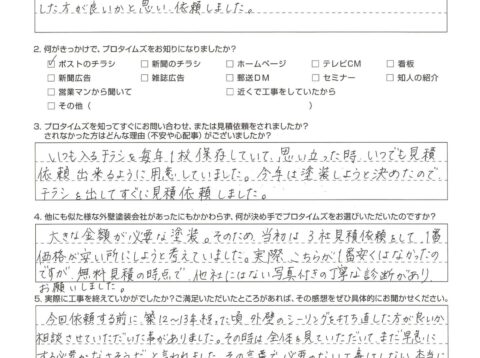 した方が良いかと思い、依頼しました。
2. 何がきっかけで、プロタイムズをお知りになりましたか?
☑ポストのチラシ □新聞のチラシ □ホームページ □テレビCM □看板
□新聞広告 □雑誌広告 □郵送DM □セミナー □知人の紹介
□営業マンから聞いて □近くで工事をしていたから
□その他( )
3. プロタイムズを知ってすぐにお問い合わせ、または見積依頼をされましたか?
されなかった方はどんな理由(不安や心配事)がございましたか?
いつも入るチラシを毎年1枚保存していて、思い立った時、いつでも見積
依頼出来るように用意していました。今年は塗装しようと決めたので
チラシを出してすぐに見積依頼しました。
4. 他にも似た様な外壁塗装会社があったにもかかわらず、何が決め手でプロタイムズをお選びいただいたのですか?
大きな金額が必要な塗装。そのため、当初は3社見積依頼をして、1番
価格が安い所にしようと考えていました。実際、こちらが1番安くはなかったの
ですが、無料見積の時点で、他社にはない写真付きの丁寧な診断があり
お願いしました。
5. 実際に工事を終えていかがでしたか?ご満足いただいたところがあれば、その感想をぜひ具体的にお聞かせください。
今回依頼する前に、築12~13年経った頃、外壁のシーリングを打ち直した方が良いか
相談させていただいた事がありました。その時は全体を見ていただいて、まだ早急に
する必要がなさそうだと言われました。その言葉が